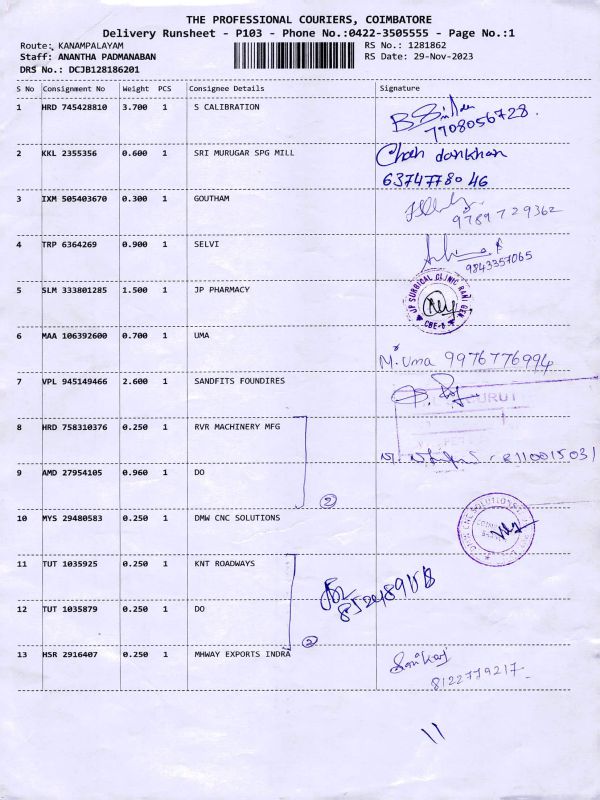 THE PROFESSIONAL COURIERS, COIMBATORE
Delivery Runsheet - P103 - Phone No.:0422-3505555 - Page No.:1
Route: KANAMPALAYAM RS No.: 1281862
Staff: ANANTHA PADMANABAN RS Date: 29-Nov-2023
DRS No.: DCJB128186201
S No Consignment No Weight PCS Consignee Details Signature
1 HRD 745428810 3.700 1 S CALIBRATION
7708056728
2 KKL 2355356 0.600 1 SRI MURUGAR SPG MILL
6374778046
3 IXM 505403670 0.300 1 GOUTHAM
9789729362
4 TRP 6364269 0.900 1 SELVI
9843357065
5 SLM 333801285 1.500 1 JP PHARMACY
JP SURGICAL CLINIC
CBE-6
6 MAA 106392600 0.700 1 UMA
M. Uma 9976776994
7 VPL 945149466 2.600 1 SANDFITS FOUNDIRES
8 HRD 758310376 0.250 1 RVR MACHINERY MFG
8110015031
9 AMD 27954105 0.960 1 DO
2
10 MYS 29480583 0.250 1 DMW CNC SOLUTIONS
DMW CNC SOLUTIONS
11 TUT 1035925 0.250 1 KNT ROADWAYS
12 TUT 1035879 0.250 1 DO
2
13 HSR 2916407 0.250 1 MHWAY EXPORTS INDRA
8122779217
11